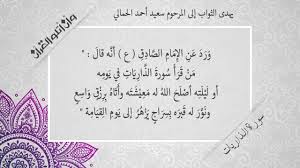 يهدى الثواب إلى المرحوم سعيد أحمد الحمالي
وَرَدَ عَنِ الإِمَامِ الصَّادِقِ ( ع ) أَنَّهُ قَالَ : "
مَنْ قَرَأَ سُورَةَ الذَّارِيَاتِ فِي يَوْمِهِ
أو لَيْلَتِهِ أَصْلَحَ اللهُ لَه مَعِيْشَتَه وأَتَاهُ بِرِزْقٍ وَاسِعٍ
ونَوَّرَ لَه قَبْرَه بِسِرَاجٍ يَزْهَرُ إِلى يَومِ القِيَامَة "
سورة الذاريات